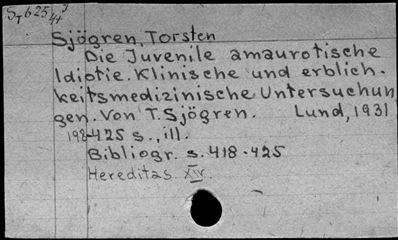 Sjögren, Torsten
Die Juvenile amaurotische
Idiotie. Klinische und erblich-
keitsmedizinische Untersuchun
gen. Von T. Sjögren. Lund, 1931
198-425 s., ill.
Bibliogr. s. 418-425
Hereditas. XIV.